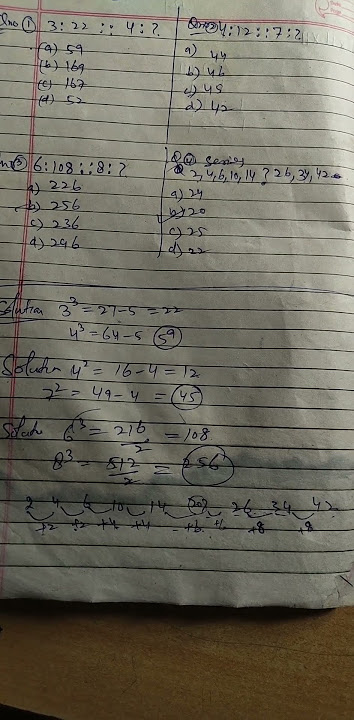 Qno ① 3 : 22 :: 4 : ?
(a) 59
(b) 169
(c) 167
(d) 52
4:12::7:?
a) 44
b) 46
c) 45
d) 42
6:108::8:?
a) 226
b) 256
c) 236
d) 296
Series
2, 4, 6, 10, 14 ? 26, 34, 42
a) 24
b) 20
c) 25
d) 22
Solution 3³ = 27-5 = 22
4³ = 64-5 59
Solution 4² = 16-4 = 12
7² = 49-4 = 45
6³ = 216/2 = 108
8³ = 512/2 = 256
2 4 6 10 14 20 26 34 42
+2 +2 +4 +4 +6 +6 +8 +8